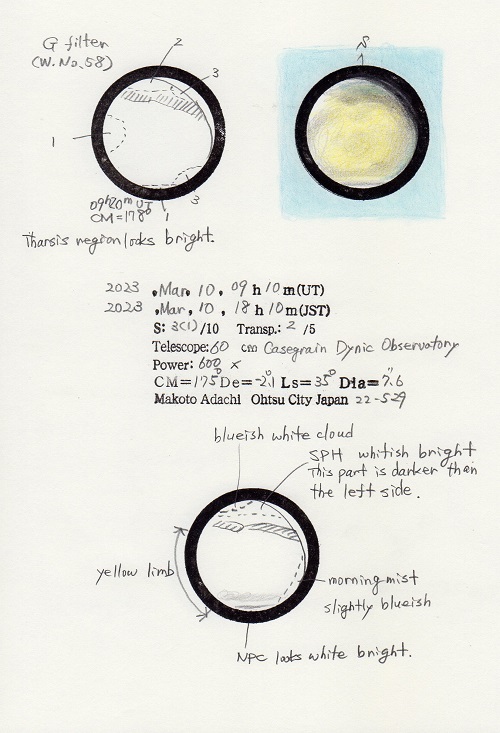 G filter
(W.No.58)
2
3
1
S
3
1
09h20m UT
CM=178°
Tharsis region looks bright.
2023 . Mar. 10 , 09 h 10 m(UT)
2023 . Mar. 10 , 18 h 10 m(JST)
S: 3(1)/10 Transp.: 2 /5
Telescope: 60 cm Casegrain Dynic Observatory
Power: 600 x
CM=175° De=-2.1° Ls=35° Dia=7.6"
Makoto Adachi Ohtsu City Japan 22-529
blueish white cloud
SPH whitish bright
This part is darker than
the left side.
yellow limb
morning mist
slightly blueish
NPC looks white bright.